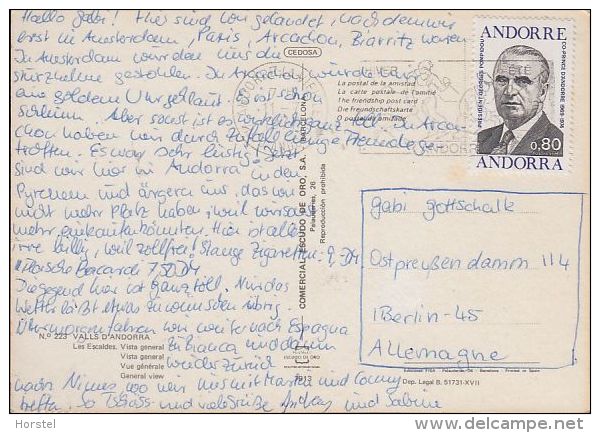 Hallo Gabi! Hier sind wir gelandet, nachdem wir
erst in Amsterdam, Paris, Arcachon, Biarritz waren
In Amsterdam wurden uns die
gestohlen. In Arcachon wurde uns
eine goldene Uhr geklaut. Ist schon
schlimm. Aber sonst ist es wirklich ganz toll. In Arca-
chon haben wir durch Zufall einige Freunde ge-
troffen. Es war sehr lustig! Jetzt
sind wir hier in Andorra in den
Pyrenäen und ärgern uns, dass wir
nicht mehr Platz haben, weil wir sonst
mehr einkaufen könnten. Hier ist alles
irre billig, weil zollfrei! Stange Zigaretten 9,- DM
1 Flasche Bacardi 7,50 DM
Die Gegend hier ist ganz toll. Nur das
Wetter läßt etwas zu wünschen übrig.
fahren wir weiter nach Espagna
zu Bianca und dann
wieder zurück
nach Nimes, wo wir uns mit Martin und Conny
treffen. So Tschüss und viele Grüße und Sabine
CEDOSA
La postal de la amistad
La carte postale de l'amitié
The friendship post card
Die Freundschaftskarte
O postal da amizade
COMERCIAL ESCUDO DE ORO, S.A.
BARCELONA
Palaudarias, 26
Reproducción prohibida
ANDORRE
PRESIDENT GEORGES POMPIDOU
CO-PRINCE D'ANDORRE 1969-1974
0,80
ANDORRA
Gabi Gottschalk
Ostpreußendamm 114
1 Berlin-45
Allemagne
N.º 223 VALLS D'ANDORRA
Les Escaldes. Vista general
Vista general
Vue générale
General view
ESCUDO DE ORO
Dep. Legal B. 51731-XVII
Horstel
www.delcampe.net